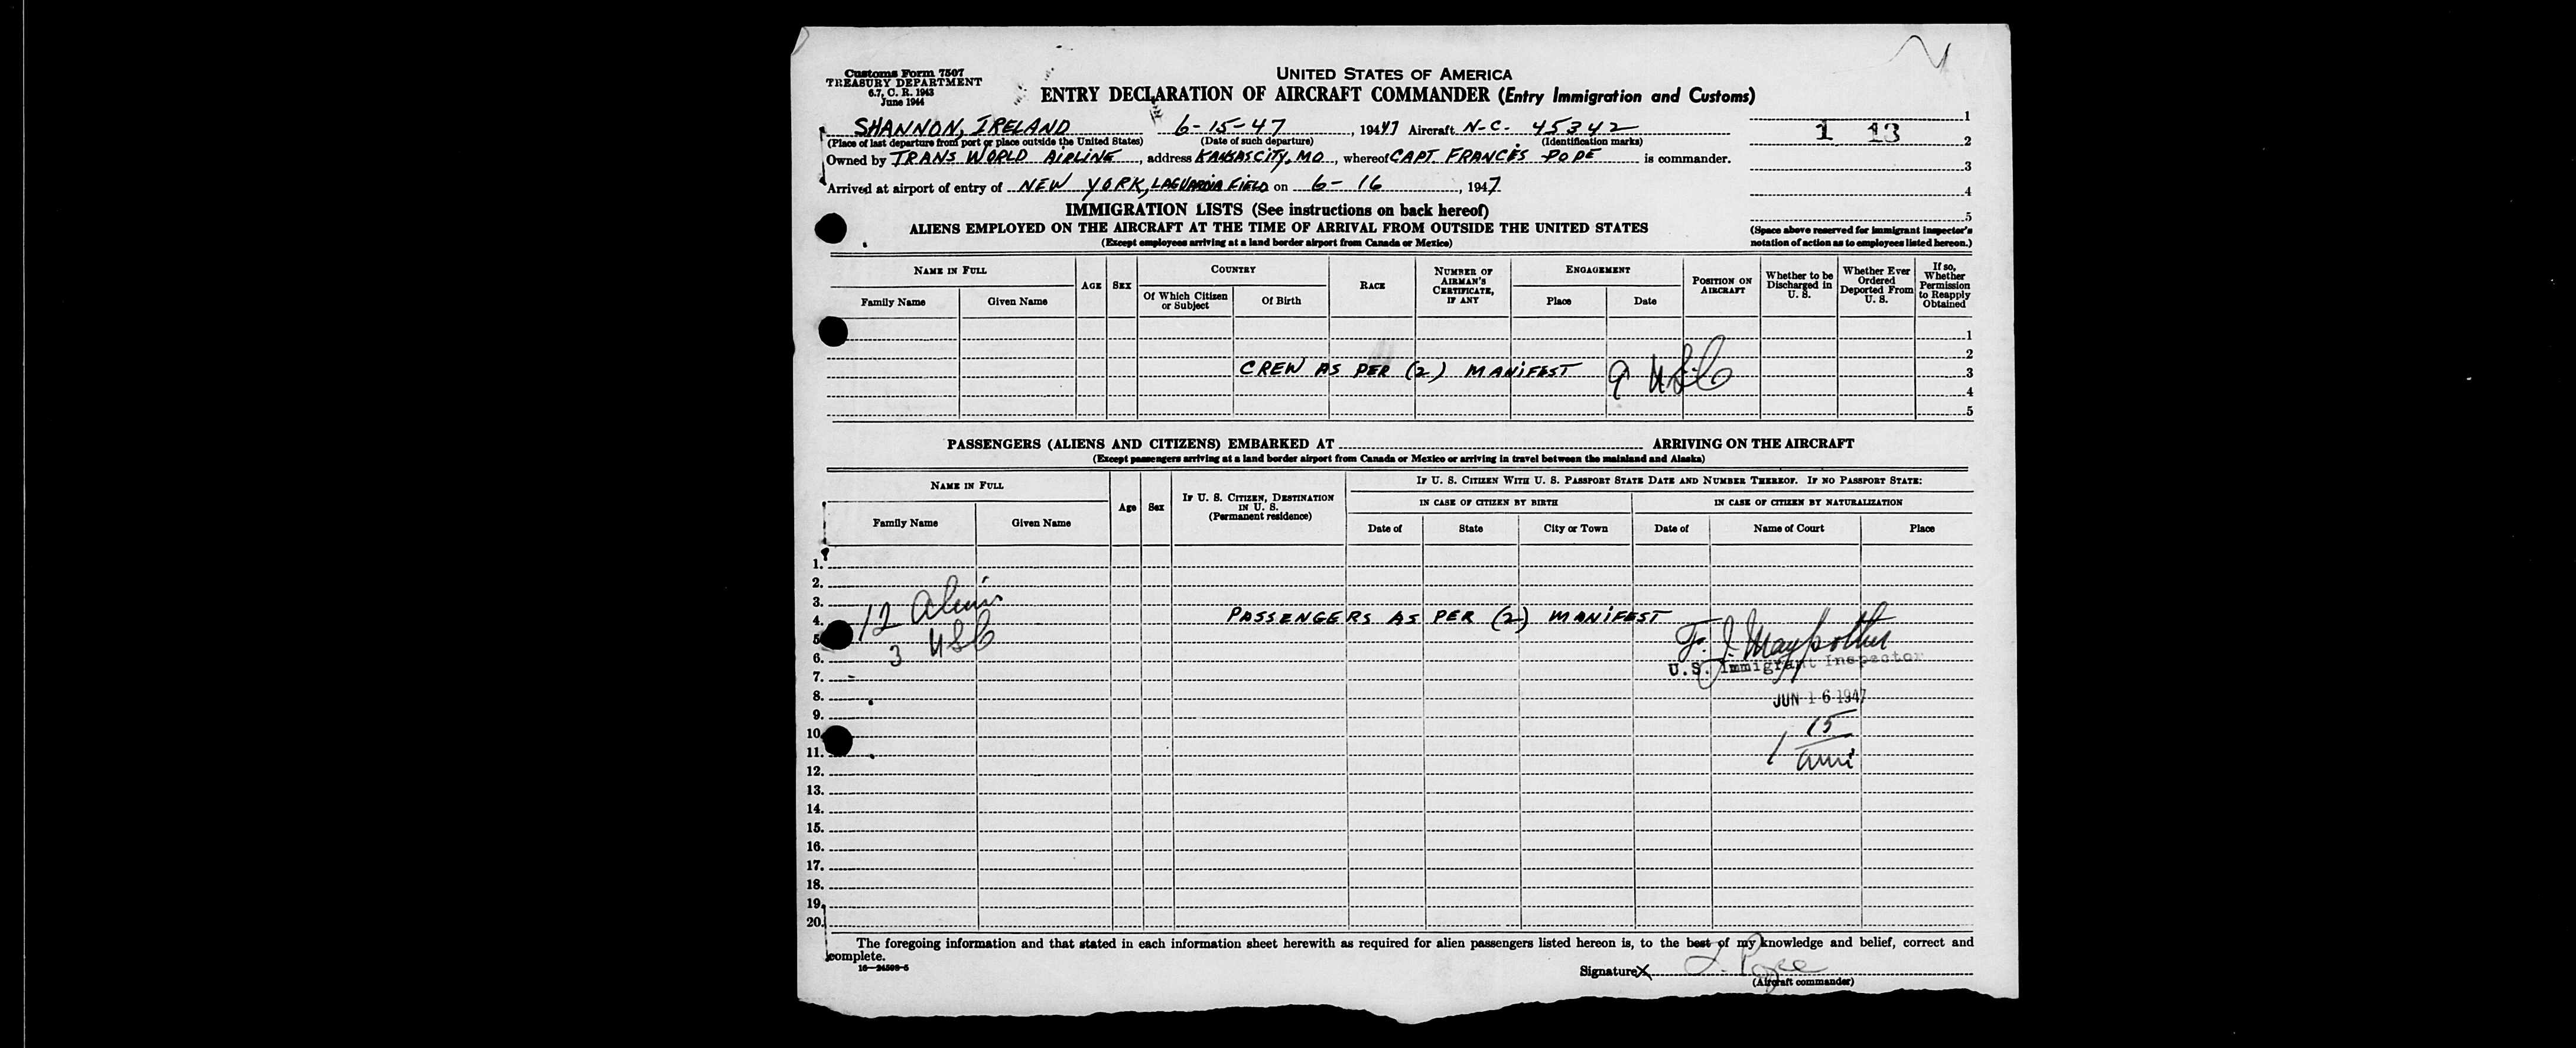 Customs Form 7507
TREASURY DEPARTMENT
6.7, C. R. 1943
June 1944
UNITED STATES OF AMERICA
ENTRY DECLARATION OF AIRCRAFT COMMANDER (Entry Immigration and Customs)
SHANNON, IRELAND 6-15-47, 194 47 Aircraft N-C- 45342
(Place of last departure from port or place outside the United States) (Date of such departure) (Identification marks)
Owned by TRANS WORLD AIRLINE, address KANSAS CITY, MO, whereof CAPT. FRANCES POPE is commander.
Arrived at airport of entry of NEW YORK, LAGUARDIA FIELD on 6-16, 1947
1
1 13
2
3
4
5
(Space above reserved for immigrant inspector's notation of action as to employees listed hereon.)
IMMIGRATION LISTS (See instructions on back hereof)
ALIENS EMPLOYED ON THE AIRCRAFT AT THE TIME OF ARRIVAL FROM OUTSIDE THE UNITED STATES
(Except employees arriving at a land border airport from Canada or Mexico)
NAME IN FULL
Family Name Given Name
AGE SEX
COUNTRY
Of Which Citizen or Subject Of Birth
RACE
NUMBER OF AIRMAN'S CERTIFICATE, IF ANY
ENGAGEMENT
Place Date
POSITION ON AIRCRAFT
Whether to be Discharged in U. S.
Whether Ever Ordered Deported From U. S.
If so, Whether Permission to Reapply Obtained
1
2
CREW AS PER (2) MANIFEST 9 USC 3
4
5
PASSENGERS (ALIENS AND CITIZENS) EMBARKED AT ARRIVING ON THE AIRCRAFT
(Except passengers arriving at a land border airport from Canada or Mexico or arriving in travel between the mainland and Alaska)
NAME IN FULL
Family Name Given Name
Age Sex
IF U. S. CITIZEN, DESTINATION IN U. S.
(Permanent residence)
IF U. S. CITIZEN WITH U. S. PASSPORT STATE DATE AND NUMBER THEREOF. IF NO PASSPORT STATE:
IN CASE OF CITIZEN BY BIRTH IN CASE OF CITIZEN BY NATURALIZATION
Date of State City or Town Date of Name of Court Place
1.
2.
3. 12 Aliens
4. PASSENGERS AS PER (2) MANIFEST
5. 3 USC
6.
U.S. Immigrant Inspector
7.
8. JUN 16 1947
9.
10. 15
11. 1
12.
13.
14.
15.
16.
17.
18.
19.
20.
The foregoing information and that stated in each information sheet herewith as required for alien passengers listed hereon is, to the best of my knowledge and belief, correct and
complete.
16—24598-5
Signature X F. Pope
(Aircraft commander)